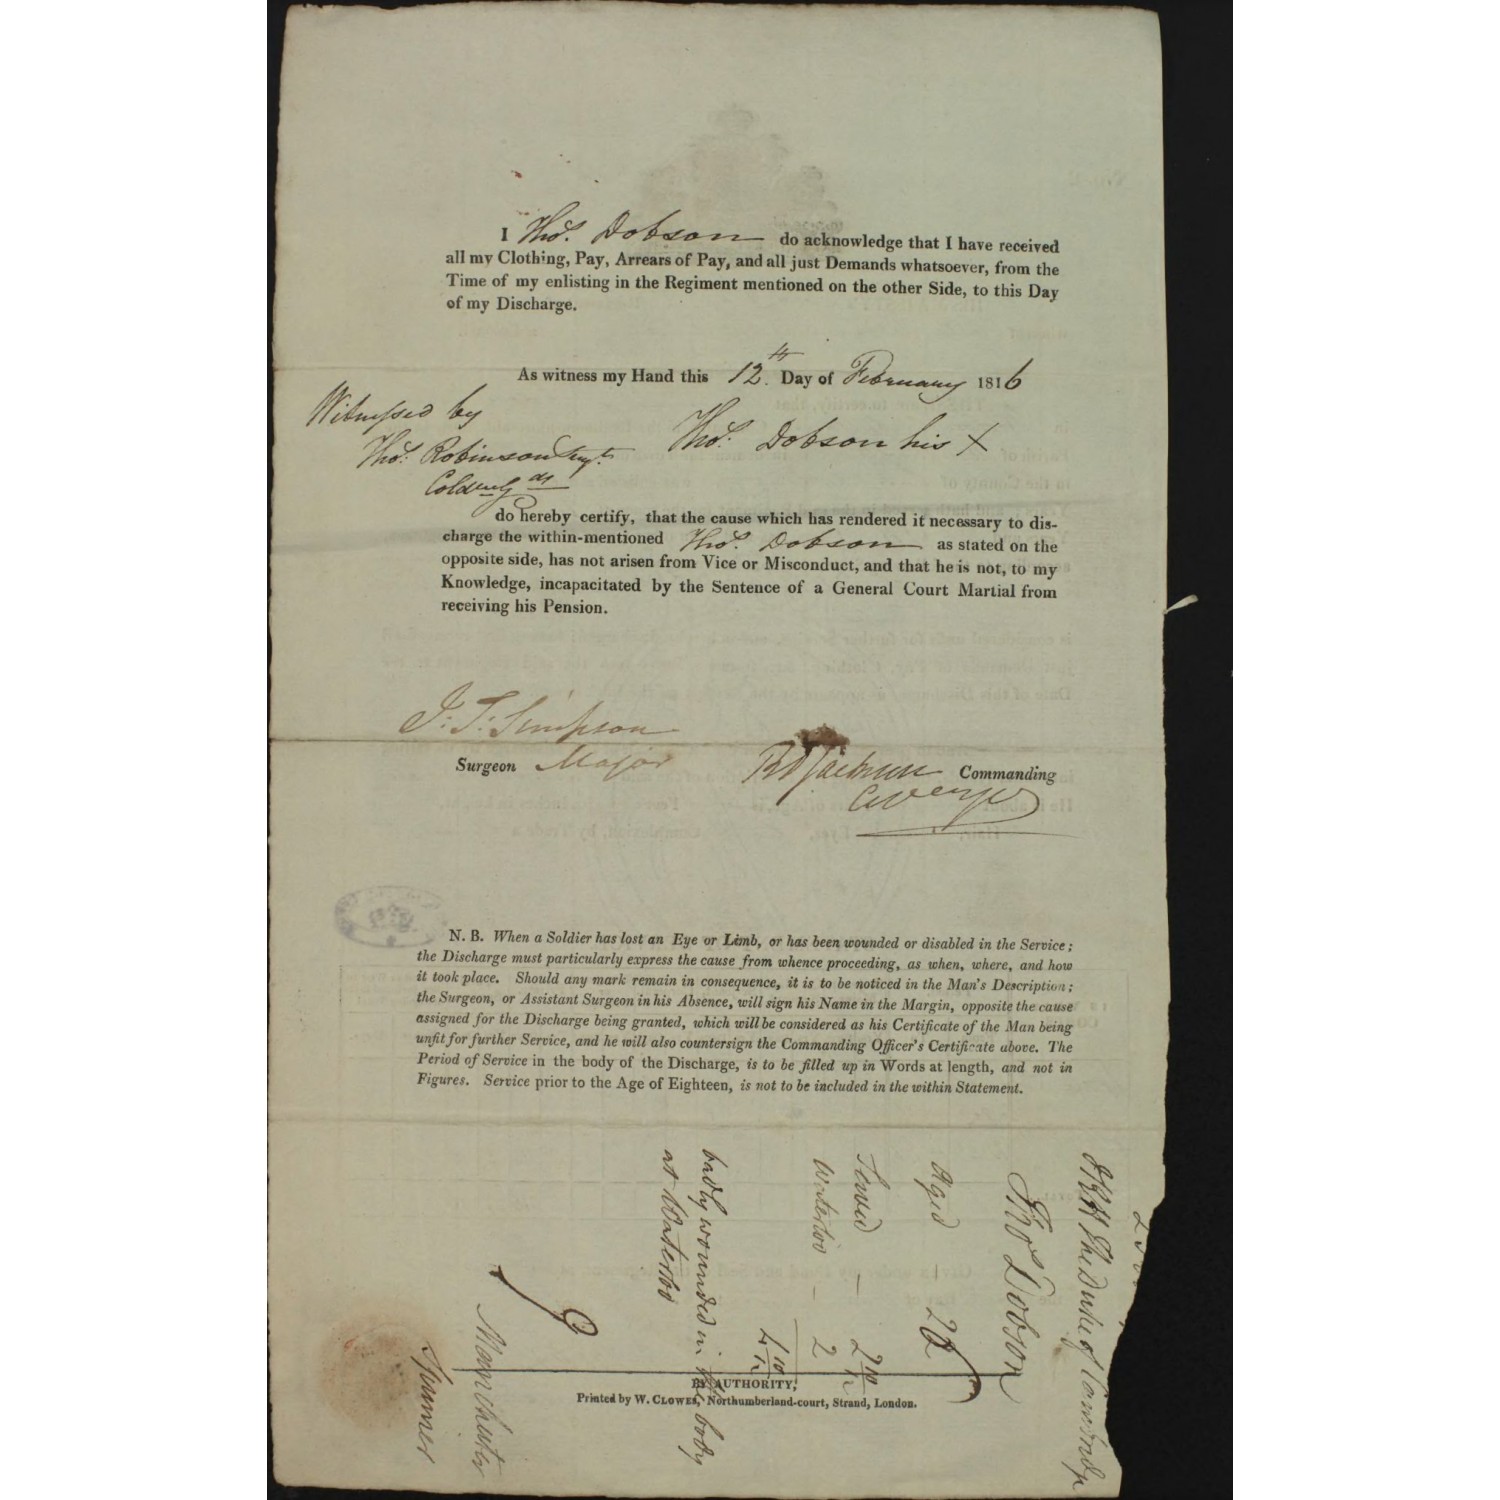 I Thos. Dobson do acknowledge that I have received
all my Clothing, Pay, Arrears of Pay, and all just Demands whatsoever, from the
Time of my enlisting in the Regiment mentioned on the other Side, to this Day
of my Discharge.
As witness my Hand this 12th. Day of February 1816
Witnessed by
Thos. Robinson Serjt.
Thos. Dobson his X
Coldm Gds
do hereby certify, that the cause which has rendered it necessary to dis-
charge the within-mentioned Thos. Dobson as stated on the
opposite side, has not arisen from Vice or Misconduct, and that he is not, to my
Knowledge, incapacitated by the Sentence of a General Court Martial from
receiving his Pension.
J. S. Simpson
Surgeon Major
Rd Jackson Commanding
N. B. When a Soldier has lost an Eye or Limb, or has been wounded or disabled in the Service;
the Discharge must particularly express the cause from whence proceeding, as when, where, and how
it took place. Should any mark remain in consequence, it is to be noticed in the Man's Description;
the Surgeon, or Assistant Surgeon in his Absence, will sign his Name in the Margin, opposite the cause
assigned for the Discharge being granted, which will be considered as his Certificate of the Man being
unfit for further Service, and he will also countersign the Commanding Officer's Certificate above. The
Period of Service in the body of the Discharge, is to be filled up in Words at length, and not in
Figures. Service prior to the Age of Eighteen, is not to be included in the within Statement.
HRH The Duke of
Thos Dobson
Aged 26
Served - 2 10/12
Waterloo - 2
4 10/12
badly wounded in the body
at Waterloo
9
Manchester
BY AUTHORITY;
Printed by W. CLOWES, Northumberland-court, Strand, London.